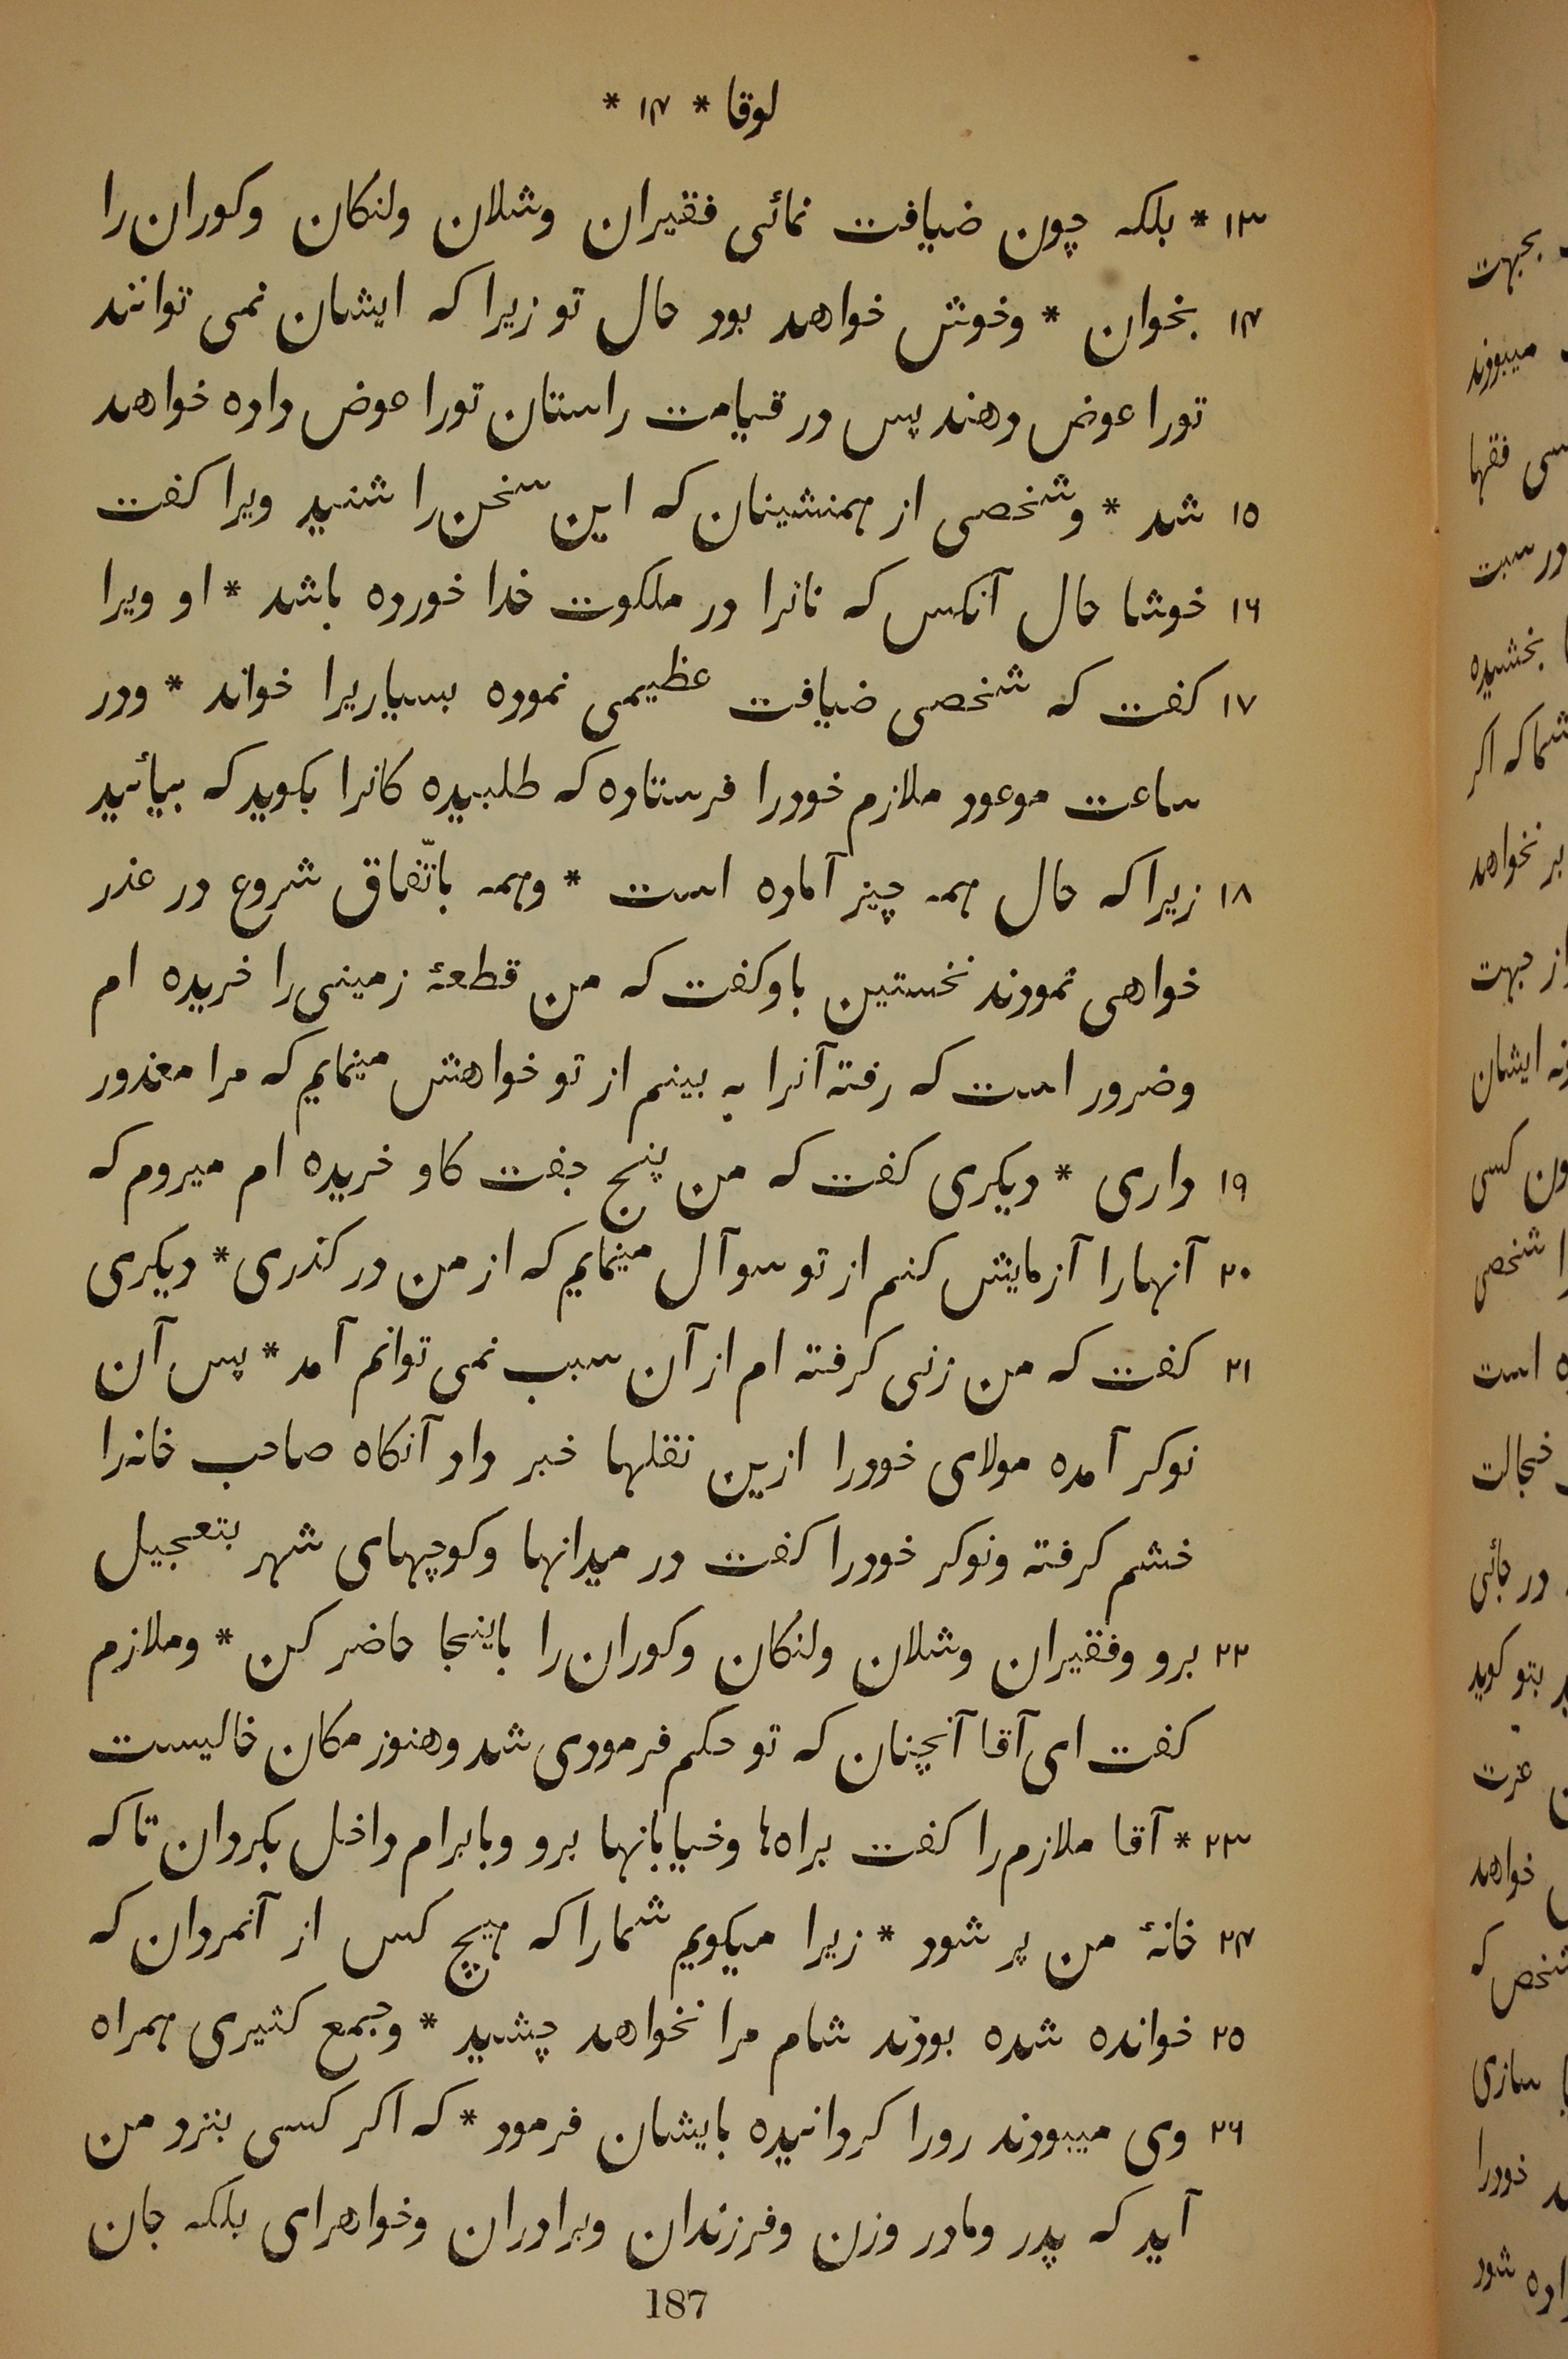 لوقا * ۱۴ *
۱۳ * بلکه چون ضیافت نمائی فقیران وشلان ولنکان وکوران را
۱۴ بخوان * وخوش خواهد بود حال تو زیرا که ایشان نمی توانند
تورا عوض دهند پس در قیامت راستان تورا عوض داده خواهد
۱۵ شد * وشخصی از همنشینان که این سخن را شنید ویرا کفت
۱۶ خوشا حال آنکس که نانرا در ملکوت خدا خورده باشد * او ویرا
۱۷ کفت که شخصی ضیافت عظیمی نموده بسیاریرا خواند * ودر
ساعت موعود ملازم خودرا فرستاده که طلبیده کانرا بکوید که بیائید
۱۸ زیرا که حال همه چیز آماده است * وهمه باتّفاق شروع در عذر
خواهی نمودند نخستین باو کفت که من قطعهٔ زمینی را خریده ام
وضرور است که رفته آنرا به بینم از تو خواهش مینمایم که مرا معذور
۱۹ داری * دیکری کفت که من پنج جفت کاو خریده ام میروم که
۲۰ آنهارا آزمایش کنم از تو سوآل مینمایم که از من در کذری * دیکری
۲۱ کفت که من زنی کرفته ام از آن سبب نمی توانم آمد * پس آن
نوکر آمده مولای خودرا ازین نقلها خبر داد آنکاه صاحب خانه را
خشم کرفته ونوکر خودرا کفت در میدانها وکوچهای شهر بتعجیل
۲۲ برو وفقیران وشلان ولنکان وکوران را باینجا حاضر کن * وملازم
کفت ای آقا آنچنان که تو حکم فرمودی شد وهنوز مکان خالیست
۲۳ * آقا ملازم را کفت براه‌ها وخیابانها برو وبابرام داخل بکردان تا که
۲۴ خانهٔ من پر شود * زیرا میکویم شمارا که هیچ کس از آنمردان که
۲۵ خوانده شده بودند شام مرا نخواهد چشید * وجمع کثیری همراه
۲۶ وی میبودند رورا کردانیده بایشان فرمود * که اکر کسی بنزد من
آید که پدر ومادر وزن وفرزندان وبرادران وخواهرای بلکه جان
187
بجهت
میبودند
فقها
در سبت
بخشیده
شما که اکر
بر نخواهد
از جهت
ایشان
کسی
شخصی
است
خجالت
در جائی
بتو کوید
عزت
خواهد
شخص که
سازی
خودرا
شود